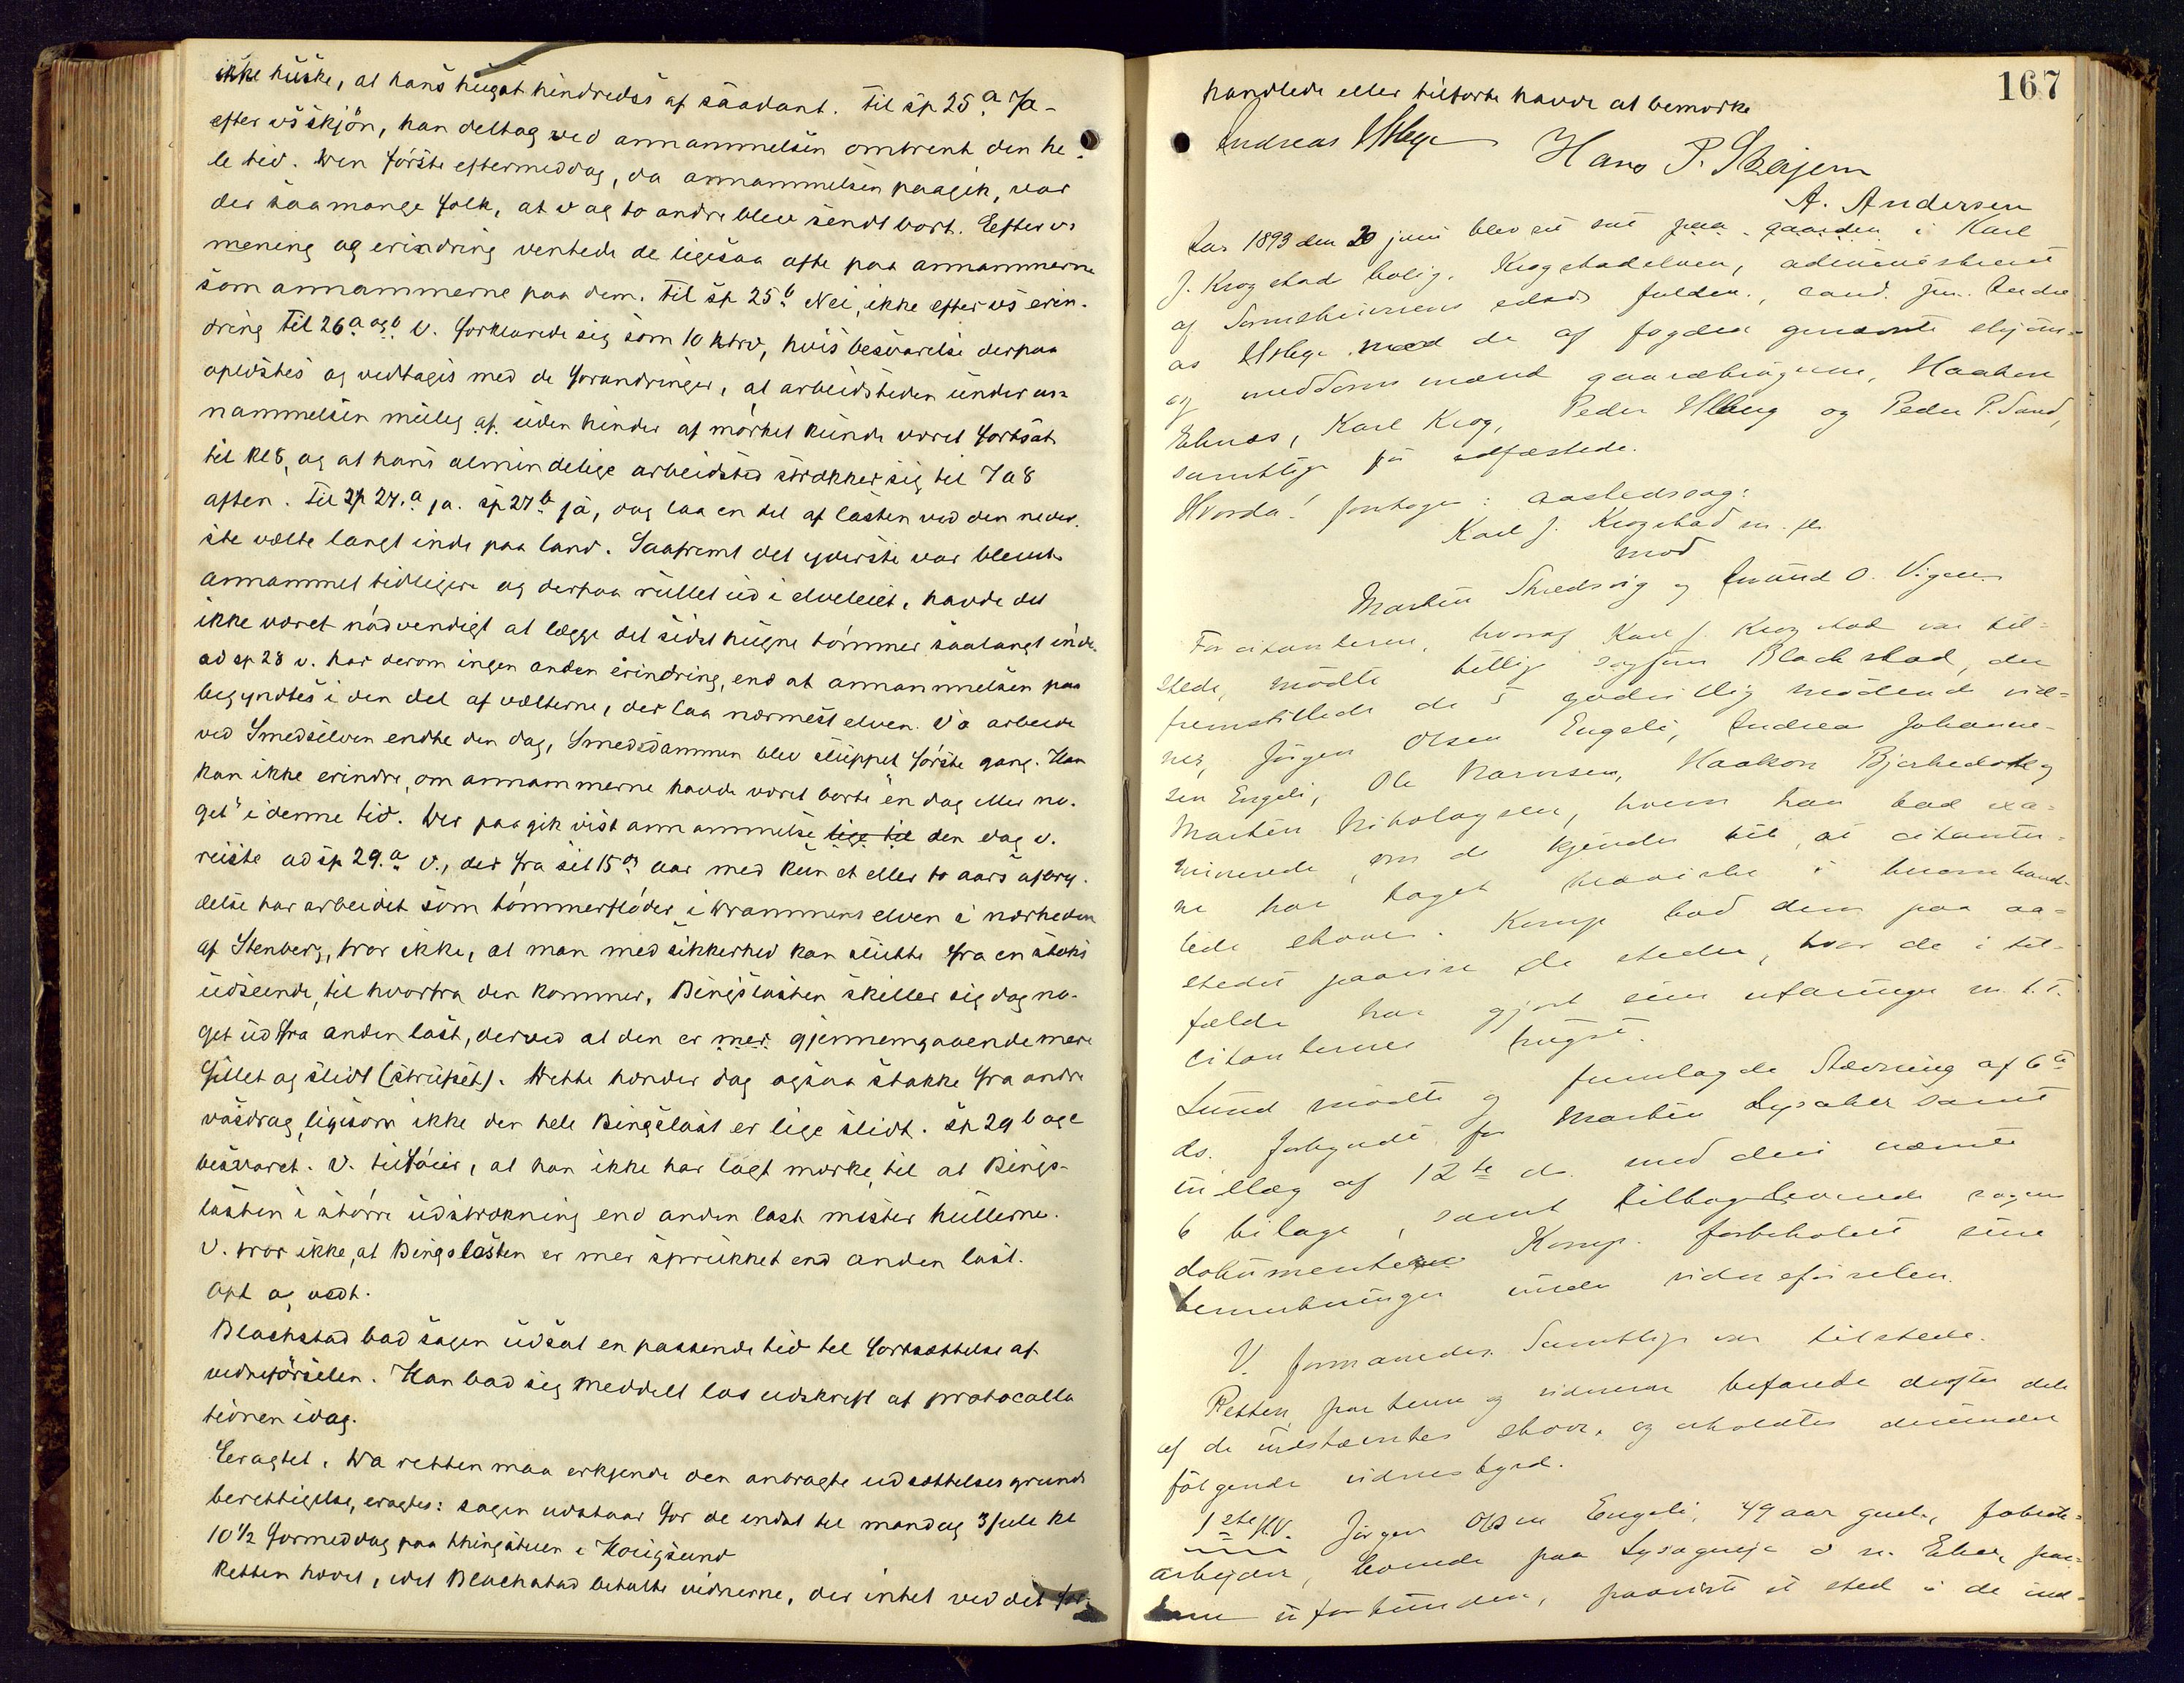 ikke huske, at hans hugst hindredes af saadant. Til sp 25 a Ja -
efter vs skjön, han deltog ved annammelsen omtrent den he-
le tid. Den förste eftermiddag, da annammelsen paagik, var
der saamange folk, at v og to andre blev sendt bort. Efter vs
mening og erindring ventede de ligesaa ofte paa annammerne
som annammerne paa dem. Til sp 25 b Nei, ikke efter vs erin-
dring Til 26 a og b V. forklarede sig som 10 ktrv, hvis besvarelse derpaa
oplæstes og vedtages med de forandringer, at arbeidstiden under an-
nammelsen mulig af uden hinder af mörket kunde været fortsat
til kl 8, og at hans almindelige arbeidstid strækker sig til 7 a 8
aften. Til sp 27. a ja. sp 27 b ja, dog laa en del af lasten ved den neder-
ste vælte langt inde paa land. Saafremt det yderste var blevet
annammet tidligere og derpaa rullet ud i elveleiet, havde det
ikke været nödvendigt at lægge det sidst hugne tömmer saalangt inde.
ad sp 28 v. har derom ingen anden erindring, end at annammelsen paa
begyndtes i den del af vælterne, der laa nærmest elven. Vs arbeide
ved Smedselven endte den dag, Smedsdammen blev sluppet förste gang. Han
kan ikke erindre, om annammerne havde været borte "en dag eller no-
get" i denne tid. Der paagik vist annammelse lige til den dag v.
reiste ad sp 29. a V., der fra sit 15 de aar med kun et eller to aars afbry-
delse har arbeidet som tömmerflöder i Drammens elven i nærheden
af Stenberg, tror ikke, at man med sikkerhed kan slutte fra en stoks
udseende, til hvorfra den kommer. Bingslasten skiller sig dog no-
get ud fra anden last, derved at den er mer gjennemgaaende mere
fillet og slidt (strufset). Dette hænder dog ogsaa stokke fra andre
vasdrag, ligesom ikke den hele Bingslast er lige slidt. sp 29 b og c
besvaret. V. tilföier, at han ikke har lagt mærke til at Bings-
lasten i större udstrækning end anden last mister hullerne.
V. tror ikke, at Bingslasten er mer sprukket end anden last.
Opl og vedt.
Blackstad bad sagen udsat en passende tid til fortsættelse af
vidneförselen. Han bad sig meddelt las udskrift af protocolla
tionen idag.
Eragtet. Da retten maa erkjende den anbragte udsættelsesgrunds
berettigelse, eragtes: sagen udstaar for de indst til mandag 3 juli kl
10 1/2 formeddag paa thingstuen i Hougsund
Retten hævet, idet Blackstad betalte vidnerne, der intet ved det for-
167
handlede eller tilførte havde at bemærke
Andreas Hsbye
Hans P. Skerjem
A. Andersen
Aar 1893 den 20 juni blev ret sat paa gaarden i Karl
J. Krogstad bolig. Krogstadelven, administreret
af Sorenskriverens edsv fuldm., cand. jur. Andre
as med de af fogden gjen nævnte skjöns-
og meddoms mænd gaardbrugerne, Haaken
Ekнæs, Karl Krog, Peder og Peder P. Sand,
samtlige udfæstede.
Hvorda! foretoges: aastedssag:
Karl J. Krogstad m. fl.
mod
Martin Stredsvig og Amund O. Vigen
For citanterne, hvoraf Karl J. Krogstad var til-
stede, mödte tillige sagförer Blackstad, der
fremstillede de 5 godvillig mödende vid-
ner, Jörgen Olsen Engeli, Andreas Johanne-
sen Engeli, Ole Karnsen, Haakon Bjerkedok og
Martin Nikolaysen, hvem han bad exa-
minerede, om de kjender til, at citanter-
ne har taget havniske i heromhand-
lede skove. Komp bad dem paa aa-
stedet paavise de steder, hvor de i til-
fælde har gjort sine erfaringer m. h. t.
citanternes hugst.
Lund mödte og fremlagde Stævning af 6te
ds. forkyndt for Martin Lysaker samt
indlæg af 12te ds. med deri nævnte
6 bilage, samt tilbageleverede sagens
dokumenter. Komp. forbeholdt sine
bemerkninger under vidneförselen.
V. formanedes. Samtlige var tilstede.
Retten, parterne og vidnerne befarede derefter dele
af de indstævntes skov, og afholdtes derunder
fölgende vidnesbyrd.
1ste HV. Jörgen Olsen Engeli, 49 aar gml., fabrik-
arbeider, boende paa Lysageeje i n. Eker, par-
terne uforbunden, paaviste et sted i de ind-